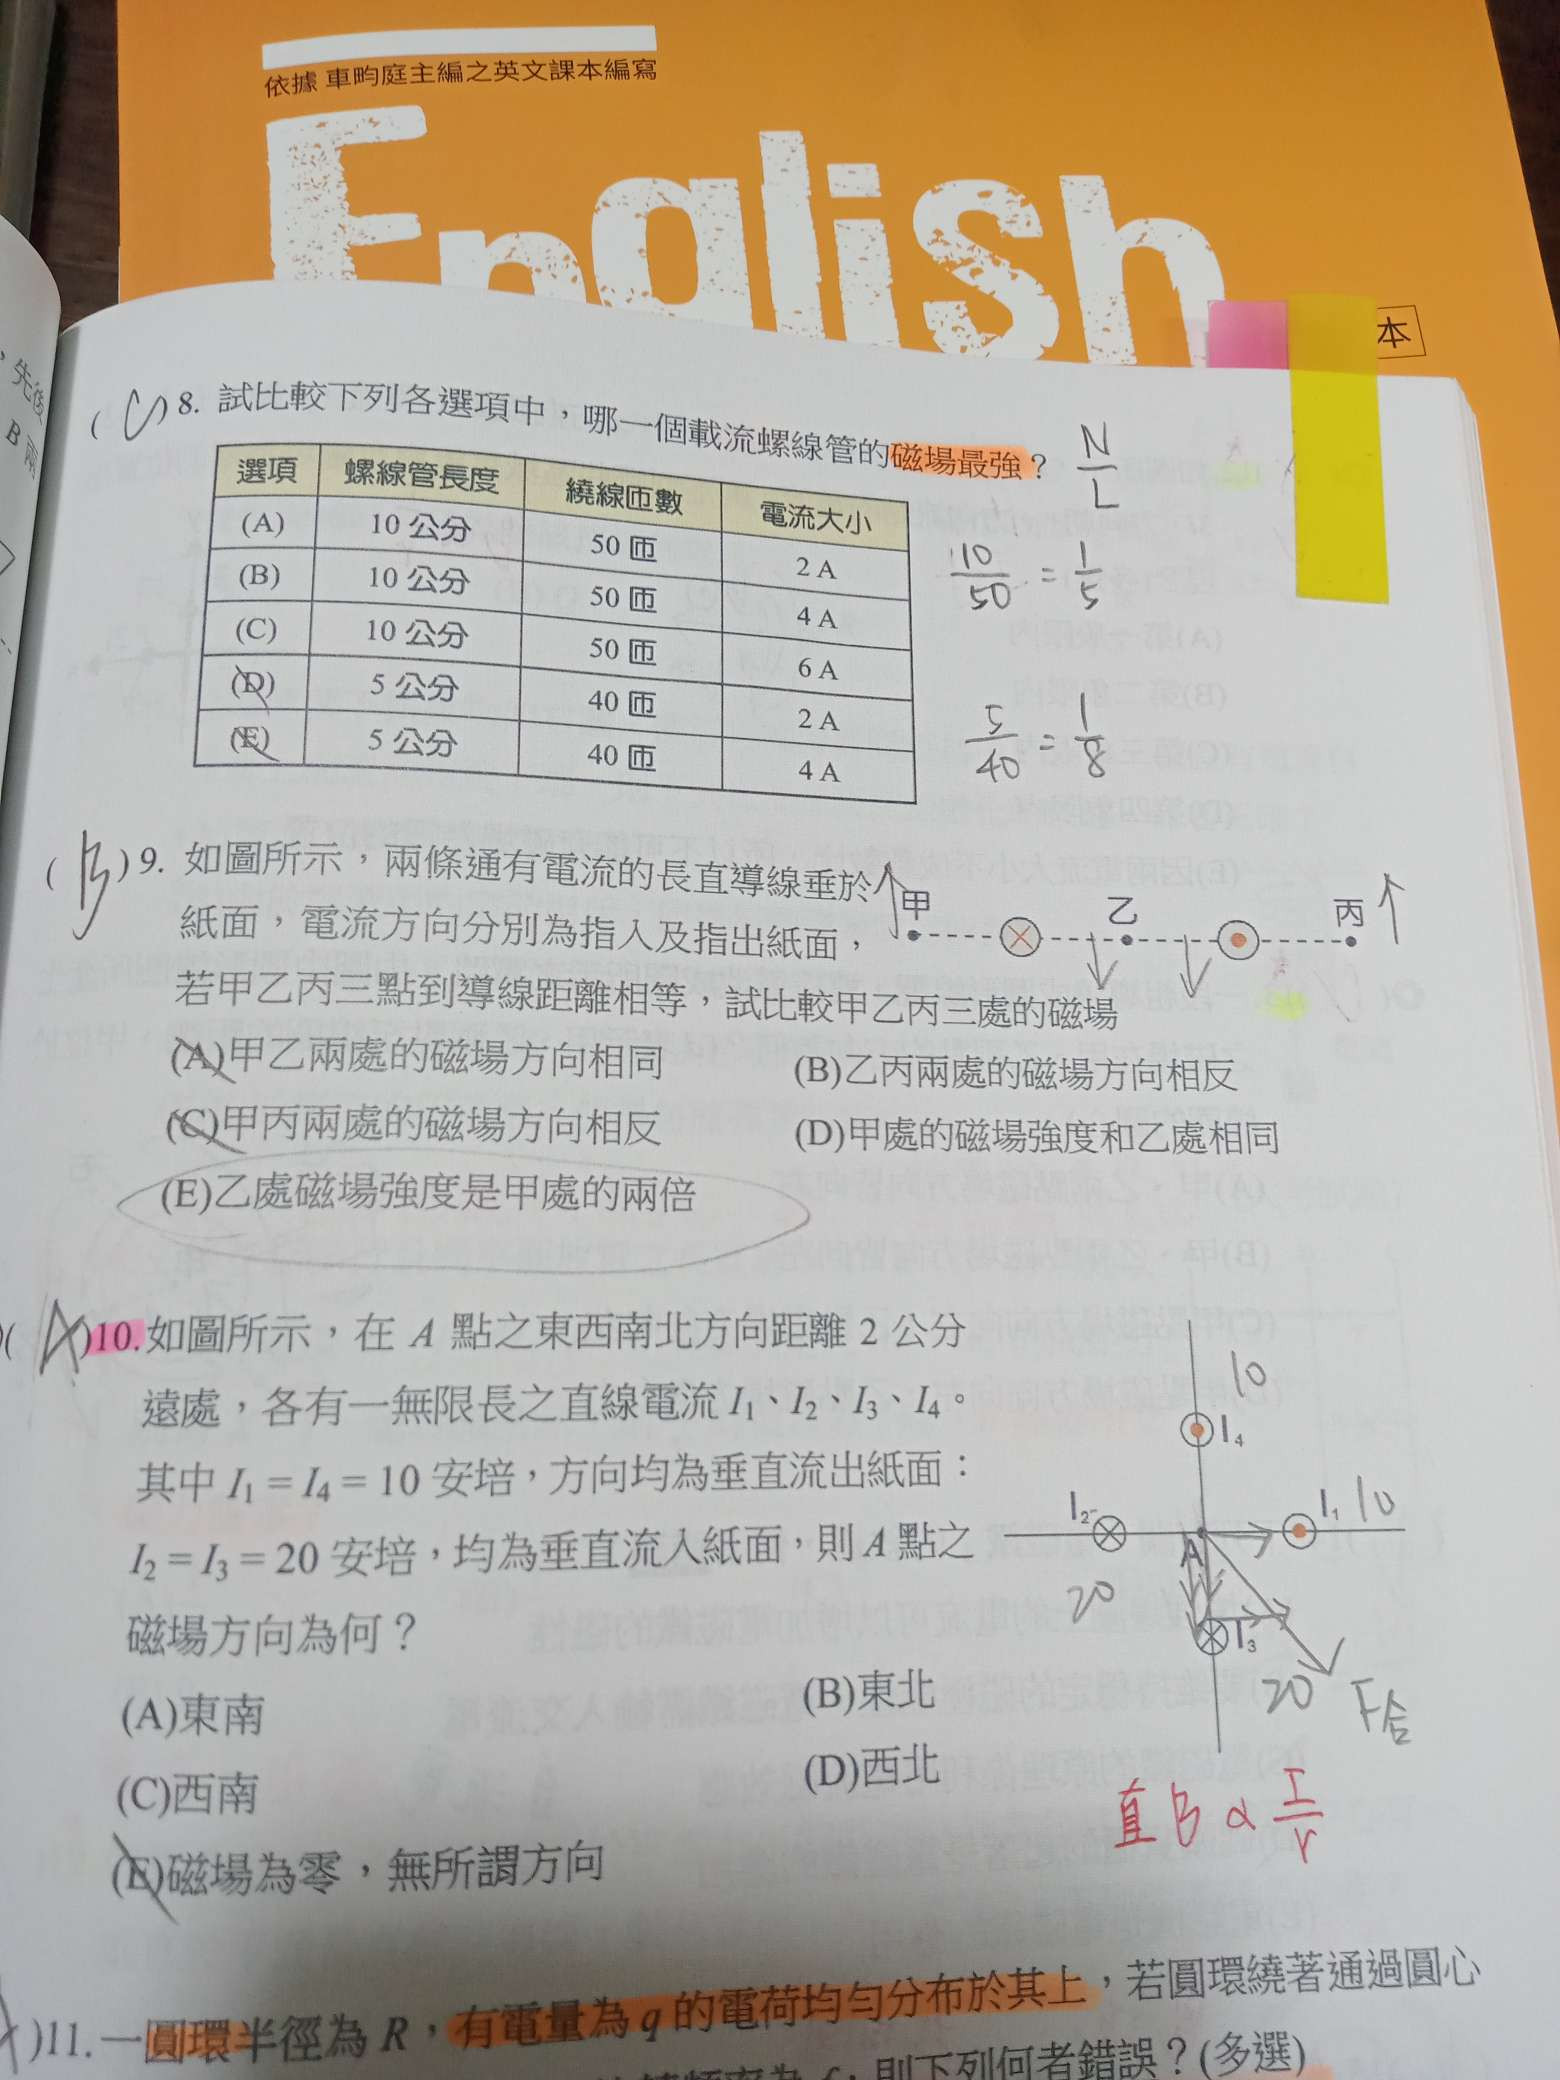 依據 車畇庭主編之英文課本編寫
English
本
先後
B 兩
( C ) 8. 試比較下列各選項中，哪一個載流螺線管的磁場最強？
N/L
選項 螺線管長度 繞線匝數 電流大小
(A) 10 公分 50 匝 2 A
(B) 10 公分 50 匝 4 A
(C) 10 公分 50 匝 6 A
(D) 5 公分 40 匝 2 A
(E) 5 公分 40 匝 4 A
10/50 = 1/5
5/40 = 1/8
( B ) 9. 如圖所示，兩條通有電流的長直導線垂於
紙面，電流方向分別為指入及指出紙面，
若甲乙丙三點到導線距離相等，試比較甲乙丙三處的磁場
甲 乙 丙
(A)甲乙兩處的磁場方向相同 (B)乙丙兩處的磁場方向相反
(C)甲丙兩處的磁場方向相反 (D)甲處的磁場強度和乙處相同
(E)乙處磁場強度是甲處的兩倍
( A )10.如圖所示，在 A 點之東西南北方向距離 2 公分
遠處，各有一無限長之直線電流 I₁、I₂、I₃、I₄。
其中 I₁ = I₄ = 10 安培，方向均為垂直流出紙面：
I₂ = I₃ = 20 安培，均為垂直流入紙面，則 A 點之
磁場方向為何？
10
I₄
I₂ I₁ 10
A
20
I₃
20 F合
(A)東南 (B)東北
(C)西南 (D)西北
(E)磁場為零，無所謂方向
直 B ∝ I/r
)11.一圓環半徑為 R，有電量為 q 的電荷均勻分布於其上，若圓環繞著通過圓心
則下列何者錯誤？(多選)